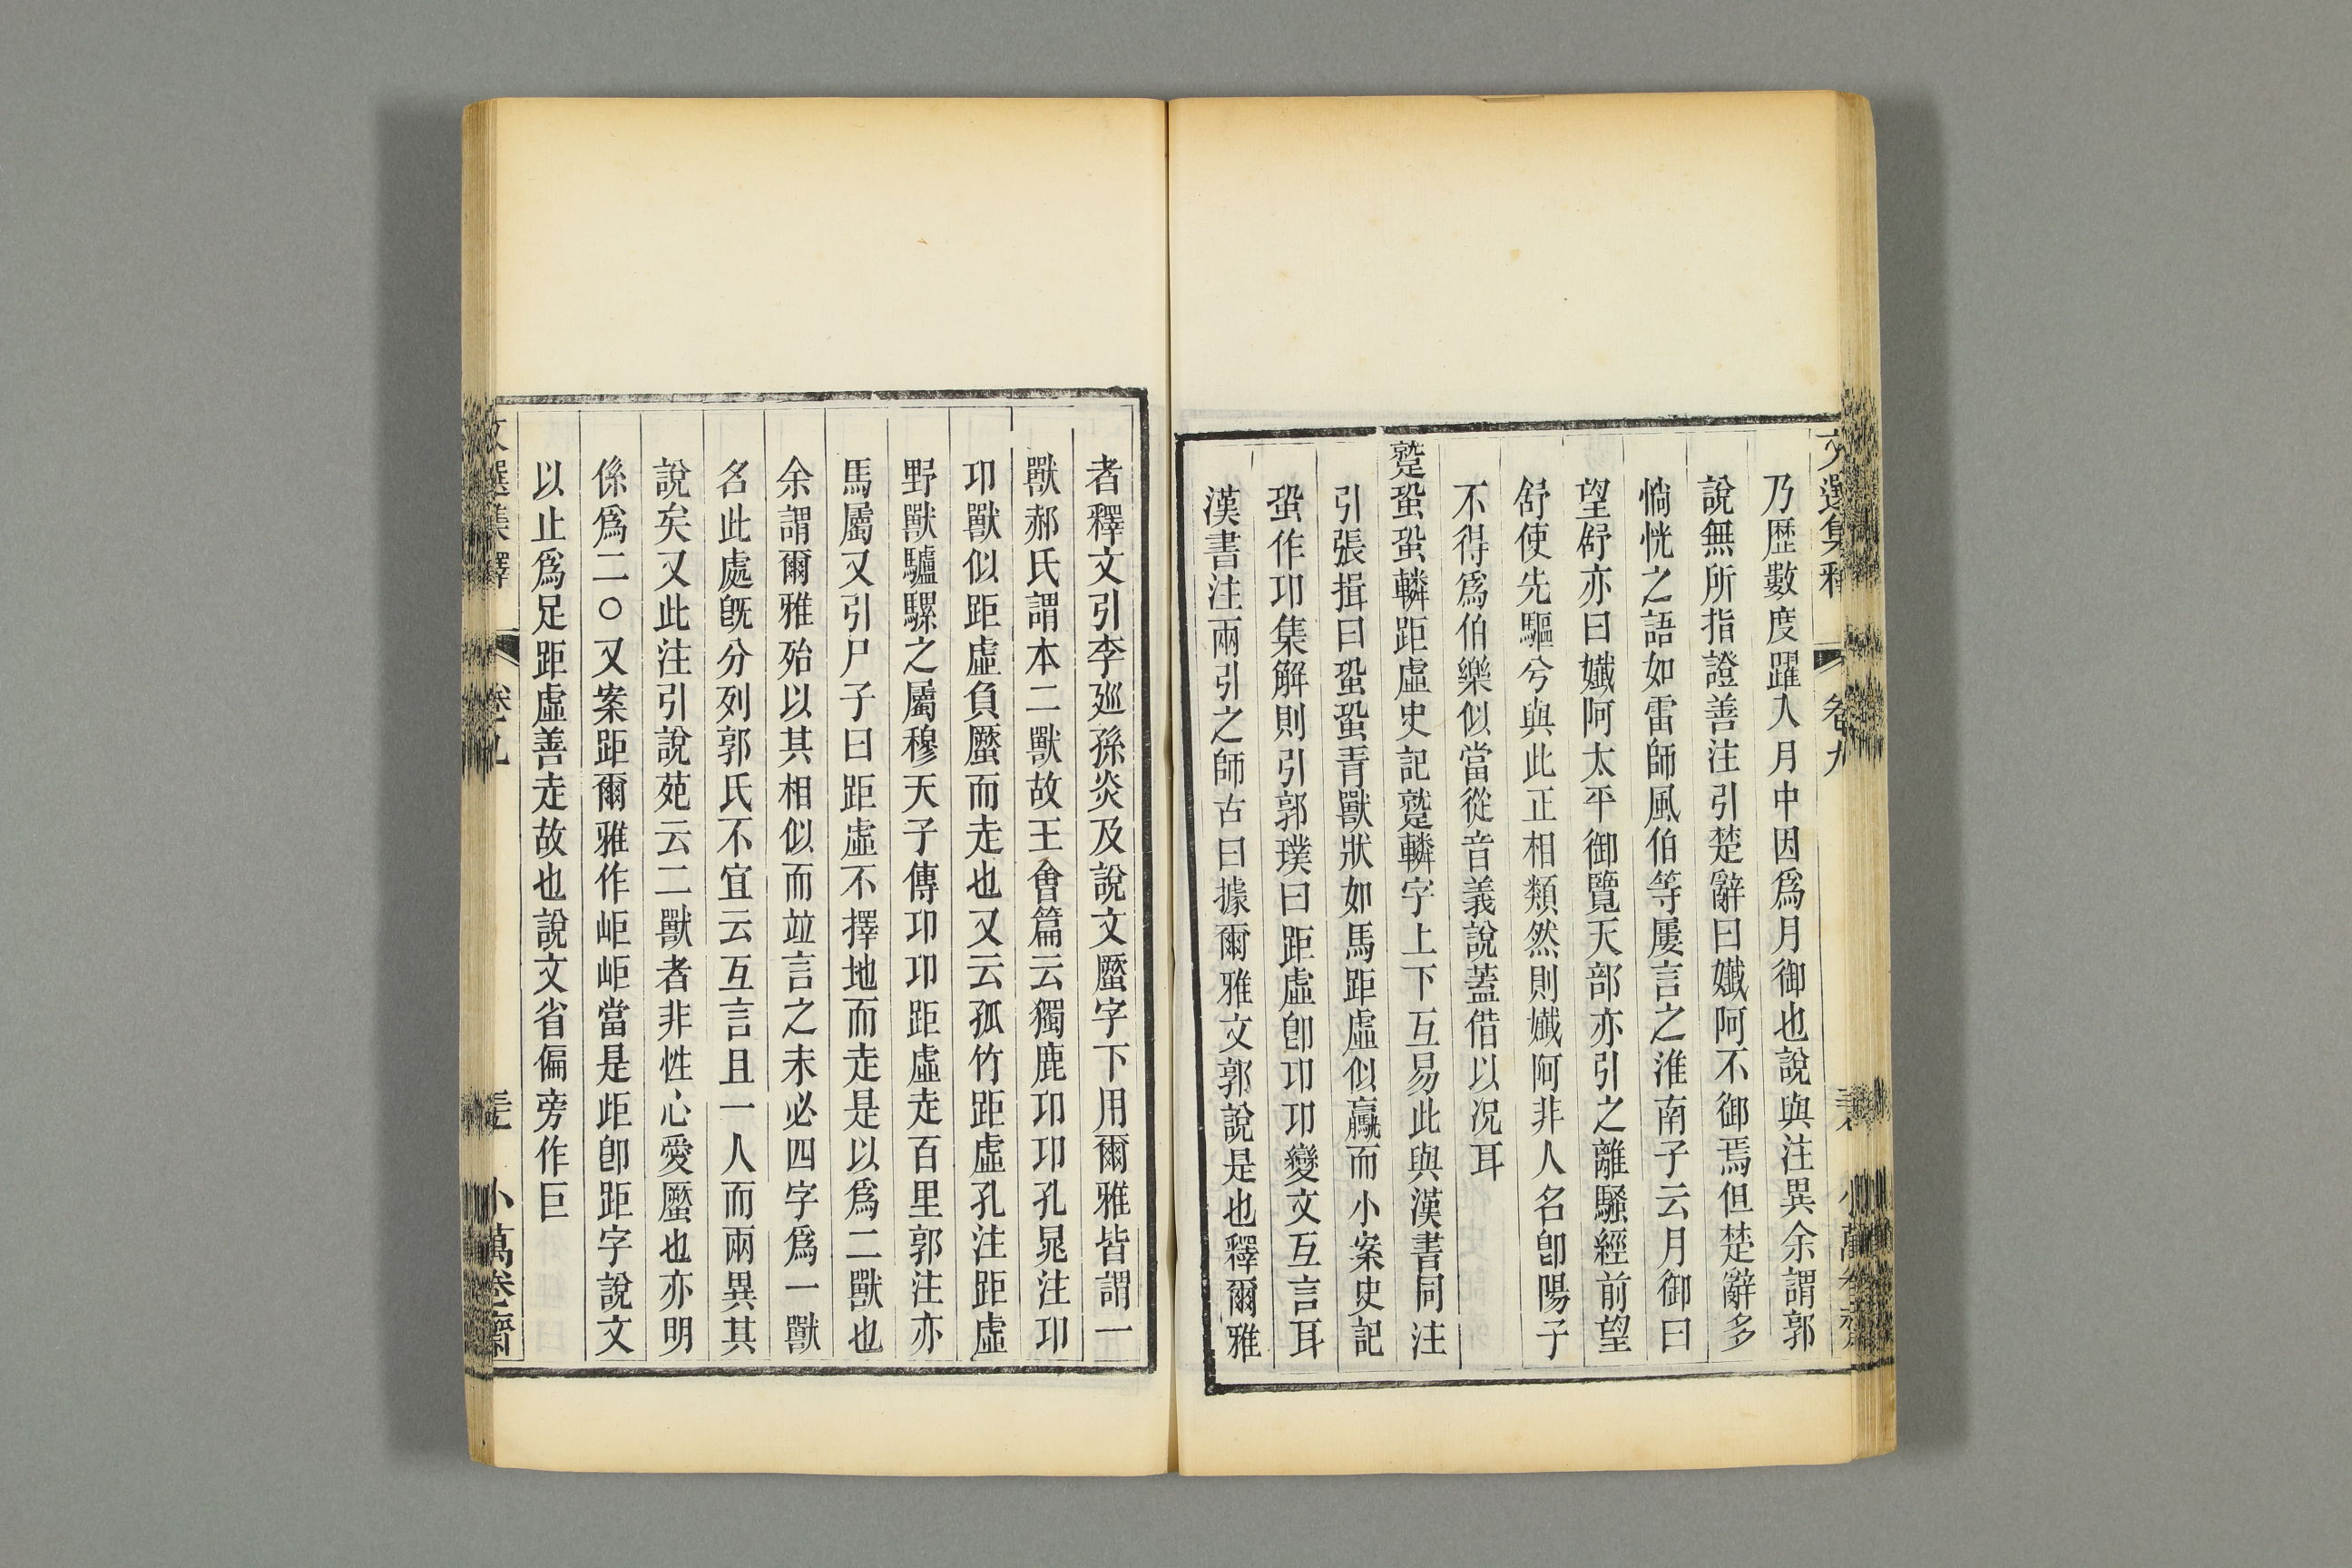 乃歷數度躍入月中因爲月御也說與注異余謂郭
說無所指證善注引楚辭曰孅阿不御焉但楚辭多
惝恍之語如雷師風伯等屢言之淮南子云月御曰
望舒亦曰孅阿太平御覽天部亦引之離騷經前望
舒使先驅兮與此正相類然則孅阿非人名卽陽子
不得爲伯樂似當從音義說蓋借以況耳
蹵蛩蛩轔距虛史記蹵轔字上下互易此與漢書同注
引張揖曰蛩蛩青獸狀如馬距虛似驘而小案史記
蛩作卭集解則引郭璞曰距虛卽卭卭變文互言耳
漢書注兩引之師古曰據爾雅文郭說是也釋爾雅
文選集釋 卷九 小萬卷齋
者釋文引李廵孫炎及說文蟨字下用爾雅皆謂一
獸郝氏謂本二獸故王會篇云獨鹿卭卭孔晁注卭
卭獸似距虛負蟨而走也又云孤竹距虛孔注距虛
野獸驢騾之屬穆天子傳卭卭距虛走百里郭注亦
馬屬又引尸子曰距虛不擇地而走是以爲二獸也
余謂爾雅殆以其相似而竝言之未必四字爲一獸
名此處旣分列郭氏不宜云互言且一人而兩異其
說矣又此注引說苑云二獸者非性心愛蟨也亦明
係爲二○又案距爾雅作岠岠當是歫卽距字說文
以止爲足距虛善走故也說文省偏旁作巨
文選集釋 卷九 小萬卷齋